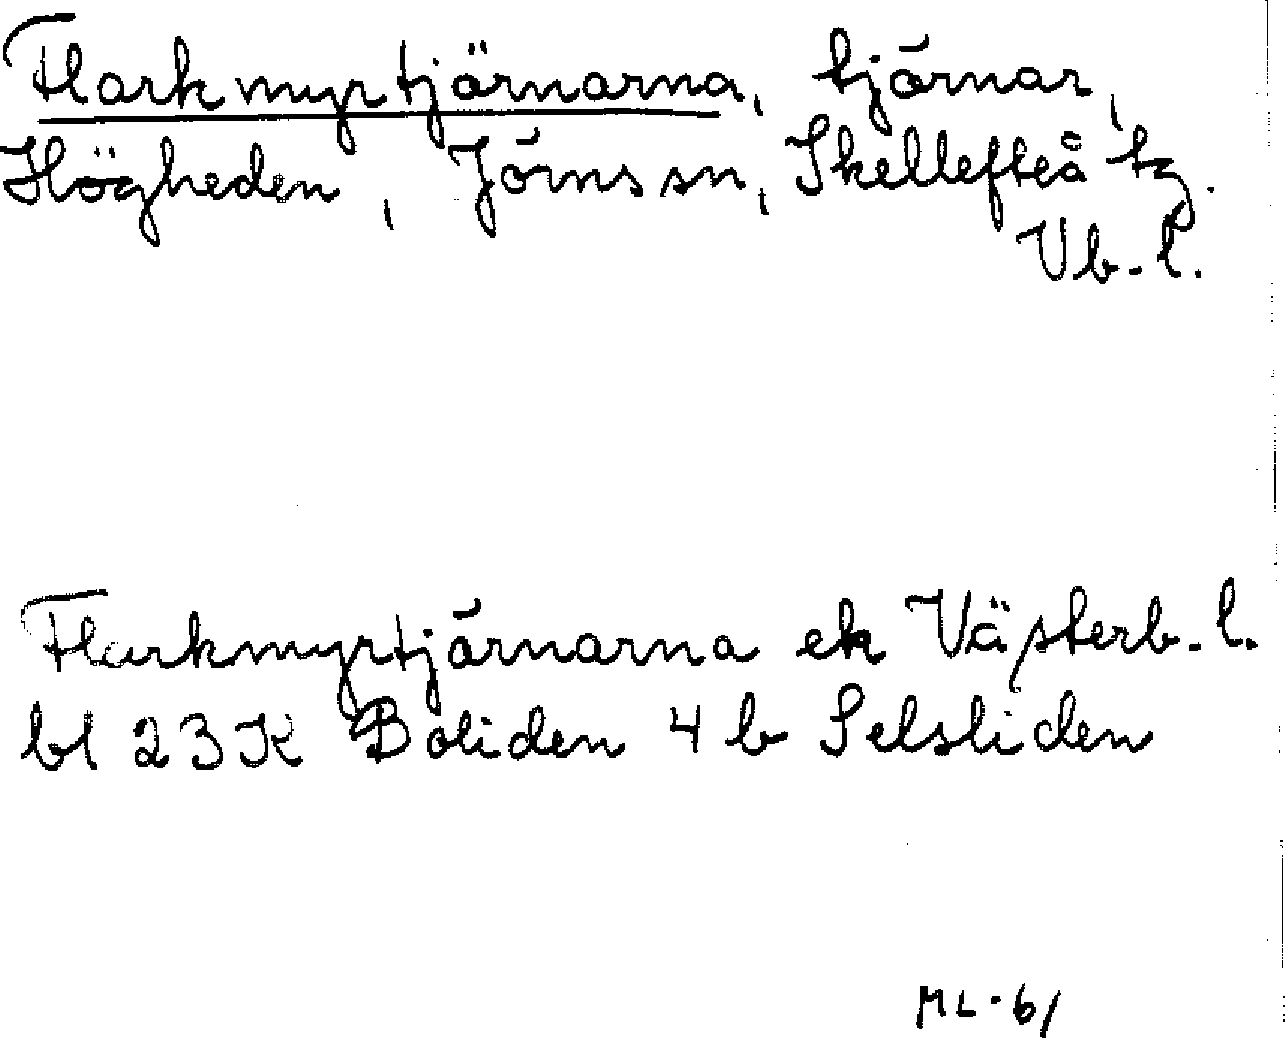 Flarkmyrtjärnarna, tjärnar,
Högheden, Jörns sn, Skellefteå tg.
Vb.l.
Flarkmyrtjärnarna ek Västerb.l.
bl 23K Boliden 4b Selsliden
ML-61